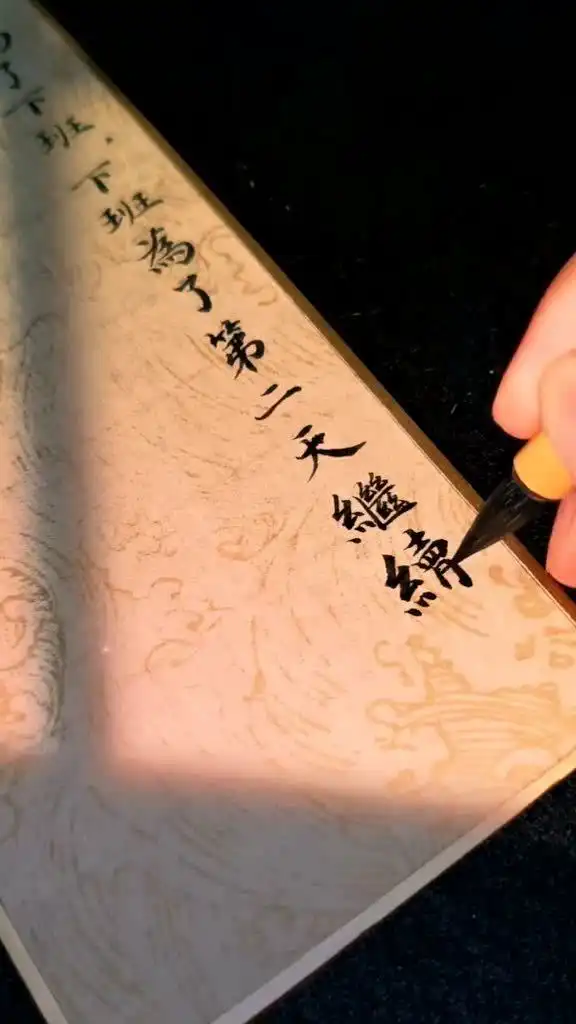 了下班，下班為了第二天繼續